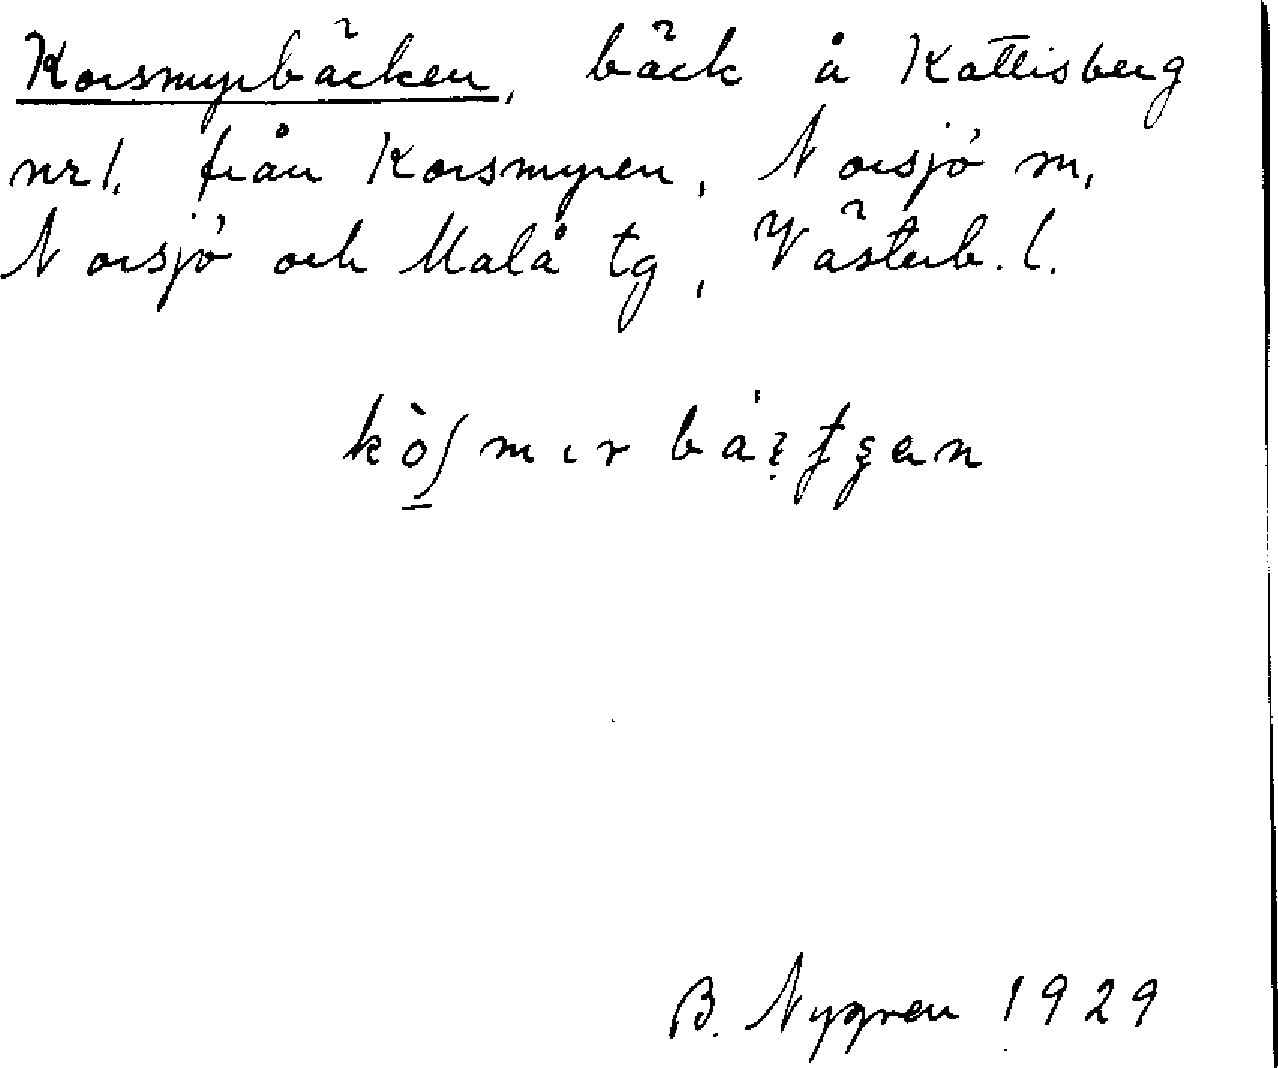 Korsmyrbäcken, bäck å Kattisberg
nr 1, från Korsmyren, Norsjö sn,
Norsjö och Malå tg, Västerb. l.
B. Nygren 1929